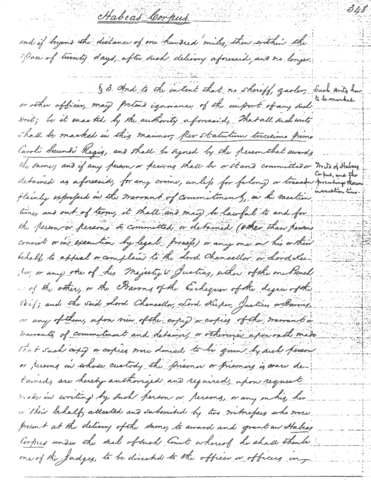 Habeas Corpus
348
and if beyond the distance of one hundred miles, then within the
space of twenty days, after such delivery aforesaid, and no longer.
§ 3. And to the intent that no sheriff, gaoler,
Such writs how
to be marked
or other officer, may pretend ignorance of the import of any such
writ; be it enacted by the authority aforesaid, That all such writs
shall be marked in this manner, Per statutum tricesimo primo
Caroli Secundi Regis, and shall be signed by the person that awards
the same; and if any person or persons shall be or stand committed or
Writs of Habeas
Corpus, and the
proceedings thereon
in vacation time
detained as aforesaid, for any crime, unless for felony or treason
plainly expressed in the warrant of commitment, in the vacation
time, and out of term, it shall and may be lawful to and for
the person or persons so committed or detained (other than persons
convict or in execution by legal process) or any one on his or their
behalf, to appeal or complain to the Lord Chancellor or Lord Kee-
per, or any one of his Majesty's Justices, either of the one Bench
or of the other, or the Barons of the Exchequer of the degree of the
Coif; and the said Lord Chancellor, Lord Keeper, Justices or Barons,
or any of them, upon view of the copy or copies of the warrant or
warrants of commitment and detainer, or otherwise upon oath made
that such copy or copies were denied to be given by such person
or persons in whose custody the prisoner or prisoners is or are de-
tained, are hereby authorized and required, upon request
made in writing by such person or persons, or any on his, her
or their behalf, attested and subscribed by two witnesses who were
present at the delivery of the same, to award and grant an Habeas
Corpus under the seal of such Court whereof he shall then be
one of the Judges, to be directed to the officer or officers in